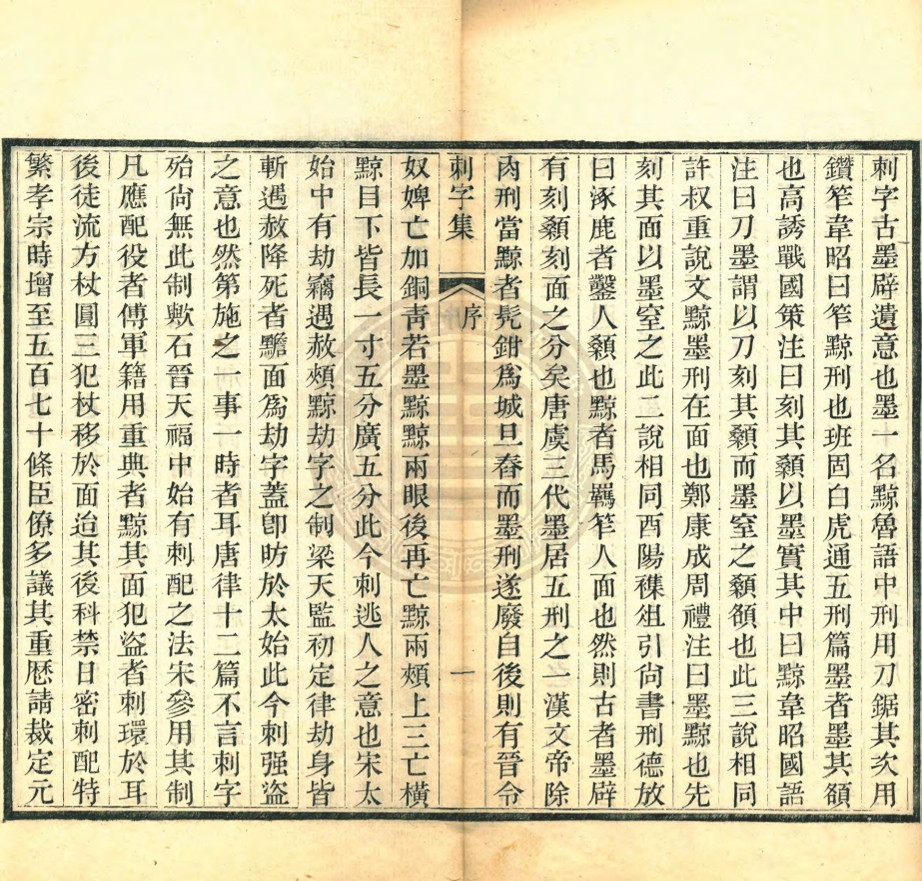 刺字古墨辟遺意也墨一名黥魯語中刑用刀鋸其次用
鑽笮韋昭曰笮黥刑也班固白虎通五刑篇墨者墨其額
也高誘戰國策注曰刻其顙以墨實其中曰黥韋昭國語
注曰刀墨謂以刀刻其顙而墨窒之顙額也此三說相同
許叔重說文黥墨刑在面也鄭康成周禮注曰墨黥也先
刻其面以墨窒之此二說相同酉陽襍俎引尙書刑德放
曰涿鹿者鑿人顙也黥者馬羈笮人面也然則古者墨辟
有刻顙刻面之分矣唐虞三代墨居五刑之一漢文帝除
肉刑當黥者髡鉗爲城旦舂而墨刑遂廢自後則有晉令
刺字集
序
一
奴婢亡加銅靑若墨黥黥兩眼後再亡黥兩頰上三亡橫
黥目下皆長一寸五分廣五分此今刺逃人之意也宋太
始中有劫竊遇赦頰黥劫字之制梁天監初定律劫身皆
斬遇赦降死者黵面爲劫字蓋卽昉於太始此今刺强盜
之意也然第施之一事一時者耳唐律十二篇不言刺字
殆尙無此制歟石晉天福中始有刺配之法宋參用其制
凡應配役者傅軍籍用重典者黥其面犯盜者刺環於耳
後徒流方杖圓三犯杖移於面迨其後科禁日密刺配特
繁孝宗時增至五百七十條臣僚多議其重厯請裁定元